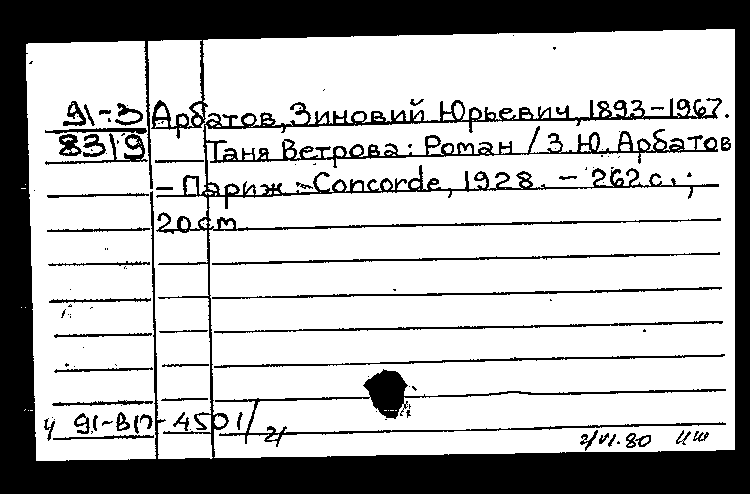 91-3 Арбатов, Зиновий Юрьевич, 1893-1967.
8319 Таня Ветрова: Роман / З.Ю. Арбатов
- Париж :-Concorde, 1928. - 262 с. ;
20 cm
Ч 91-ВП-4501/21